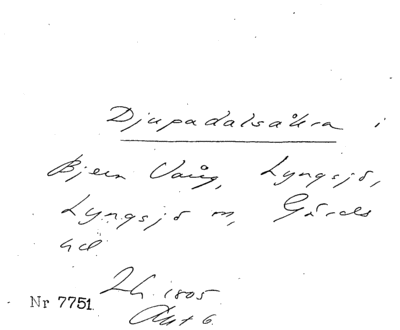 Djupadalsåkra i
Bjern Vång, Lyngsjö,
Lyngsjö m, Gärds
hd
Lh. 1805
Akt 6.
Nr 7751